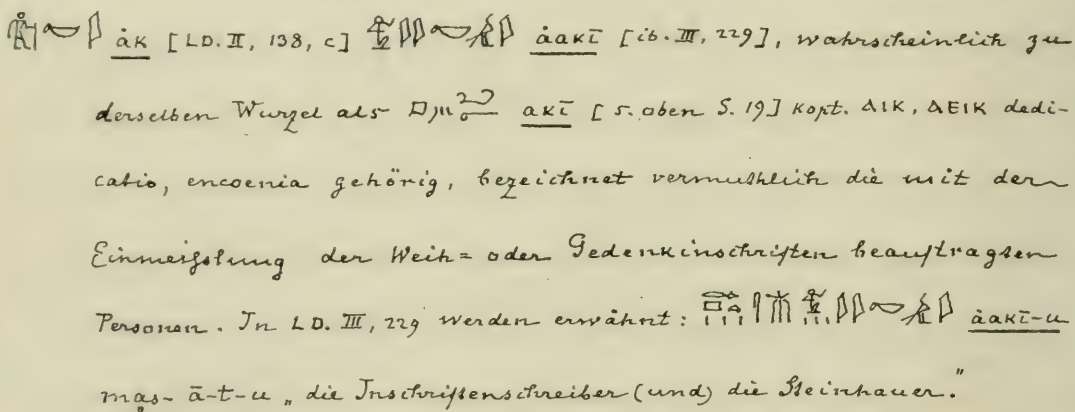 ȧk [LD. II, 138, c] ȧakī [ib. III, 229], wahrscheinlich zu
derselben Wurzel als akī [s. oben S. 19] kopt. ⲁⲓⲕ, ⲁⲉⲓⲕ dedi-
catio, encoenia gehörig, bezeichnet vermuthlich die mit der
Einmeißelung der Weih= oder Gedenkinschriften beauftragten
Personen. In LD. III, 229 werden erwähnt: ȧakī-u
mas-ā-t-u „die Inschriftenschreiber (und) die Steinhauer."